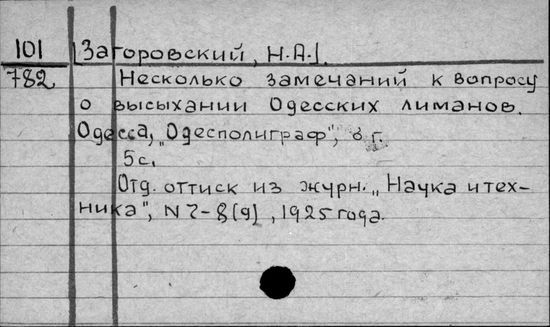 101 [Загоровский, Н.А.].
782 Несколько замечаний к вопросу
о высыхании Одесских лиманов.
Одесса, "Одесполиграф", б. г.
5 с.
Отд. оттиск из журн. „Наука и тех-
ника", N 7-8(9), 1925 года.